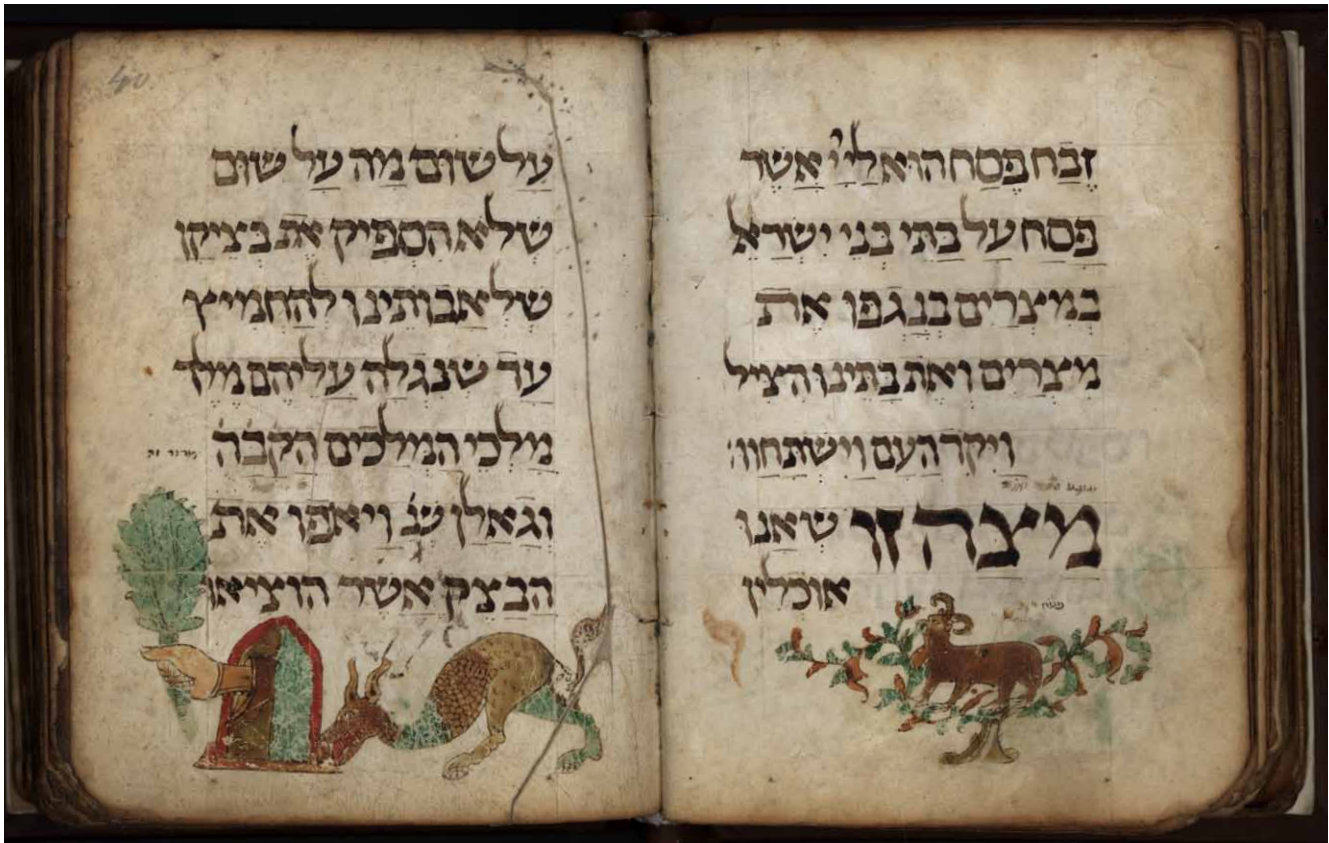 זבח פסח הוא ליי אשר
פסח על בתי בני ישראל
במצרים בנגפו את
מצרים ואת בתינו הציל
ויקד העם וישתחוו׃
מצה זו שאנו
אוכלין
40.
על שום מה על שום
שלא הספיק את בציקן
של אבותינו להחמיץ
עד שנגלה עליהם מלך
מלכי המלכים הקבה
וגאלן שנ׳ ויאפו את
הבצק אשר הוציאו